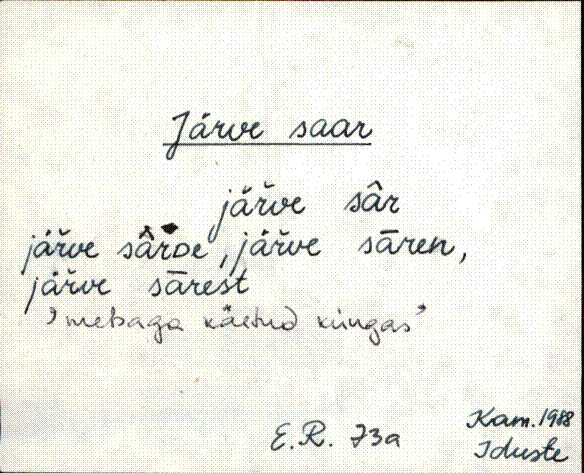 Järve saar
järve sâr
järve sârde, järve sāren,
järve sārest
'metsaga käetud küngas'
E.R. 73a
Kam. 1988
Iduste